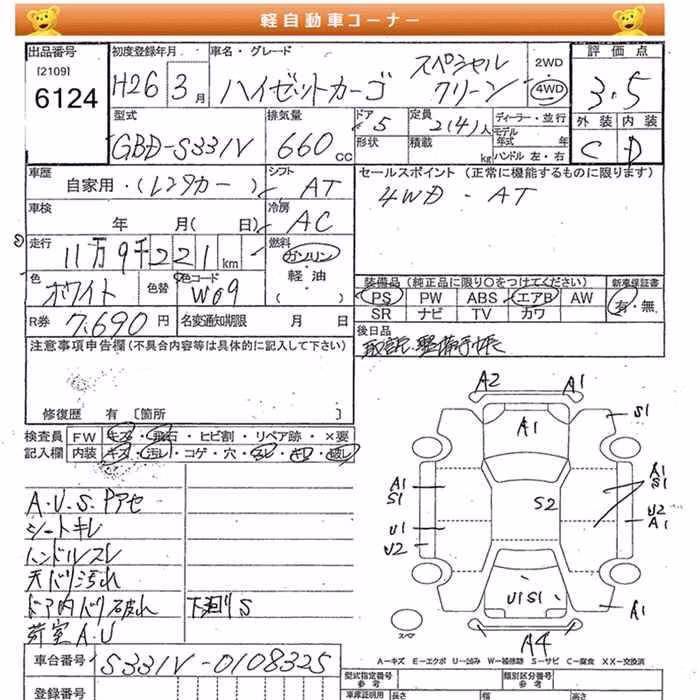 軽自動車コーナー
出品番号 初度登録年月 車名・グレード 評価点
[2109]
6124
H26 3月 ハイゼットカーゴ スペシャル クリーン 2WD 4WD 3.5
型式 排気量 ドア 定員 ディーラー・並行 外装 内装
GBD-S331V 660cc 5 2(4)人 モデル年式 年 C D
形状 積載 kg ハンドル 左・右
車歴 シフト セールスポイント (正常に機能するものに限ります)
自家用・(レンタカー) AT 4WD・AT
車検 冷房
年 月( 日) AC
走行 燃料
11万9千221km ガソリン
軽・油
( )
色 色替 色コード
ホワイト W09
装備品 (純正品に限り○をつけてください) 新車保証書
PS PW ABS エアB AW 有・無
SR ナビ TV カワ
R券 7,690円 名変通知期限 月 日
後日品
取説、整備手帳
注意事項申告欄(不具合内容等は具体的に記入して下さい)
修復歴 有 〔箇所 〕
検査員 FW キズ・飛石・ヒビ割・リペア跡・×要
記入欄 内装 キズ・汚レ・コゲ・穴・スレ・キレ・破レ
A.U.S.Pアセ
シートキレ
ハンドルスレ
天バリ汚れ
ドア内バリ破れ 下廻りS
荷室A.U
A2 A1
A1
S1
A1
S1
A1
S1
S2
U2
A1
U1
U2
U1S1
A1
スペア
A4
A-キズ E-エクボ U-凹み W-補修跡 S-サビ C-腐食 XX-交換済
車台番号 S331V-0108325
登録番号
型式指定番号 参考 類別区分番号 参考
車庫証明用 参考 長さ 幅 高さ